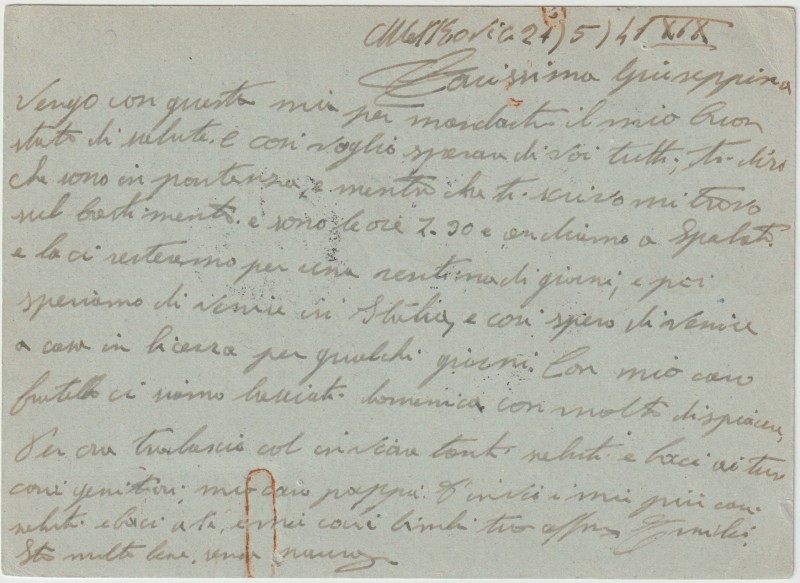 Metkovic 21/5/41 XIX
Carissima Giuseppina
Vengo con questa mia per mandarti il mio buon
stato di salute. e cosi voglio sperare di voi tutti, ti dirò
che sono in partenza, mentre che ti scrivo mi trovo
sul bastimento e sono le ore 7.30 e andiamo a Spalato
e la ci resteremo per una ventina di giorni, e poi
speriamo di venire in Italia, e cosi spero di venire
a casa in licenza per qualchi giorni. Con mio caro
fratello ci siamo lasciati domenica con molto dispiacere,
Per ora tralascio col inviare tanti saluti e baci ai tuoi
cari genitori, mio caro pappà. T'invio i miei più cari
saluti e baci a te, e miei cari bimbi tuo affmo
Sto molto bene, senza